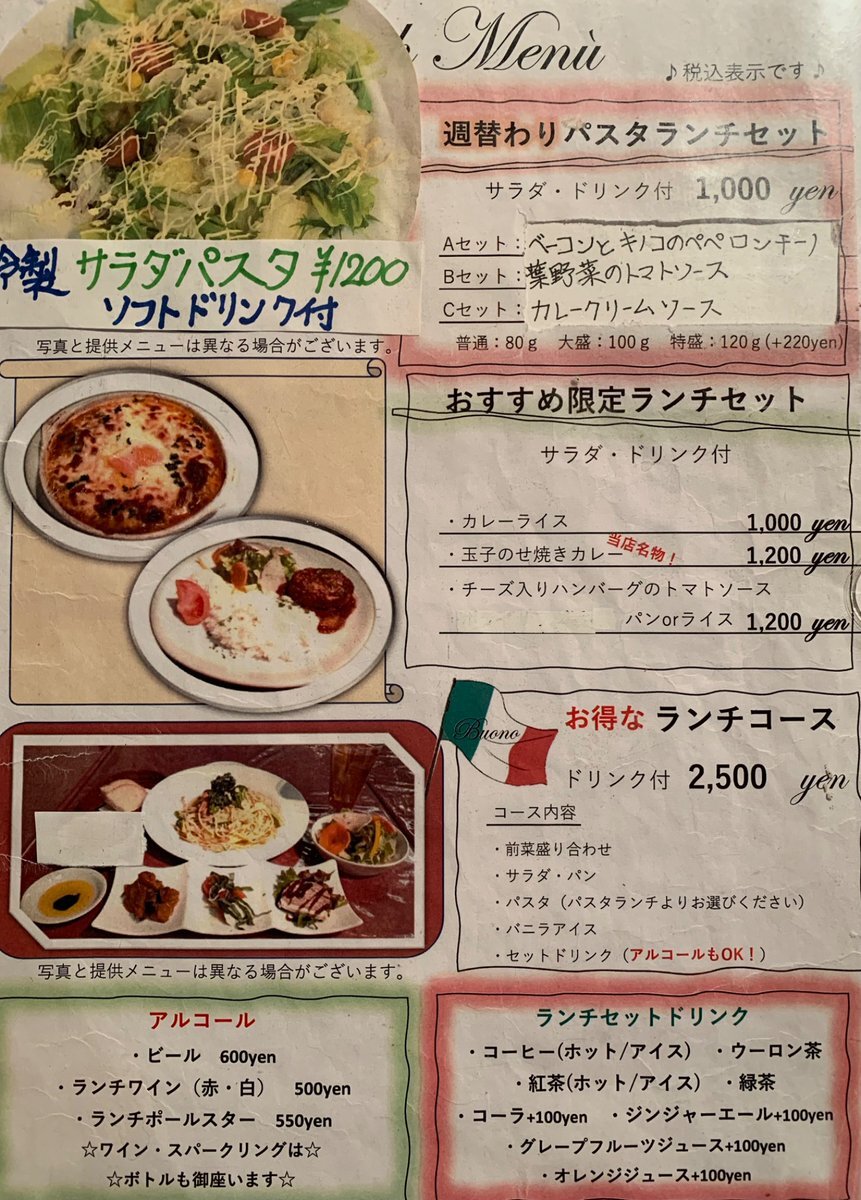 Menù
♪税込表示です♪
週替わりパスタランチセット
サラダ・ドリンク付 1,000 yen
Aセット：ベーコンとキノコのペペロンチーノ
Bセット：葉野菜のトマトソース
Cセット：カレークリームソース
普通：80g 大盛：100g 特盛：120g(+220yen)
冷製 サラダパスタ ¥1200
ソフトドリンク付
写真と提供メニューは異なる場合がございます。
おすすめ限定ランチセット
サラダ・ドリンク付
・カレーライス 1,000 yen
・玉子のせ焼きカレー 当店名物！ 1,200 yen
・チーズ入りハンバーグのトマトソース
パンorライス 1,200 yen
Buono
お得な ランチコース
ドリンク付 2,500 yen
コース内容
・前菜盛り合わせ
・サラダ・パン
・パスタ（パスタランチよりお選びください）
・バニラアイス
・セットドリンク（アルコールもOK！）
写真と提供メニューは異なる場合がございます。
アルコール
・ビール 600yen
・ランチワイン（赤・白） 500yen
・ランチポールスター 550yen
☆ワイン・スパークリングは☆
☆ボトルも御座います☆
ランチセットドリンク
・コーヒー(ホット/アイス) ・ウーロン茶
・紅茶(ホット/アイス) ・緑茶
・コーラ+100yen ・ジンジャーエール+100yen
・グレープフルーツジュース+100yen
・オレンジジュース+100yen